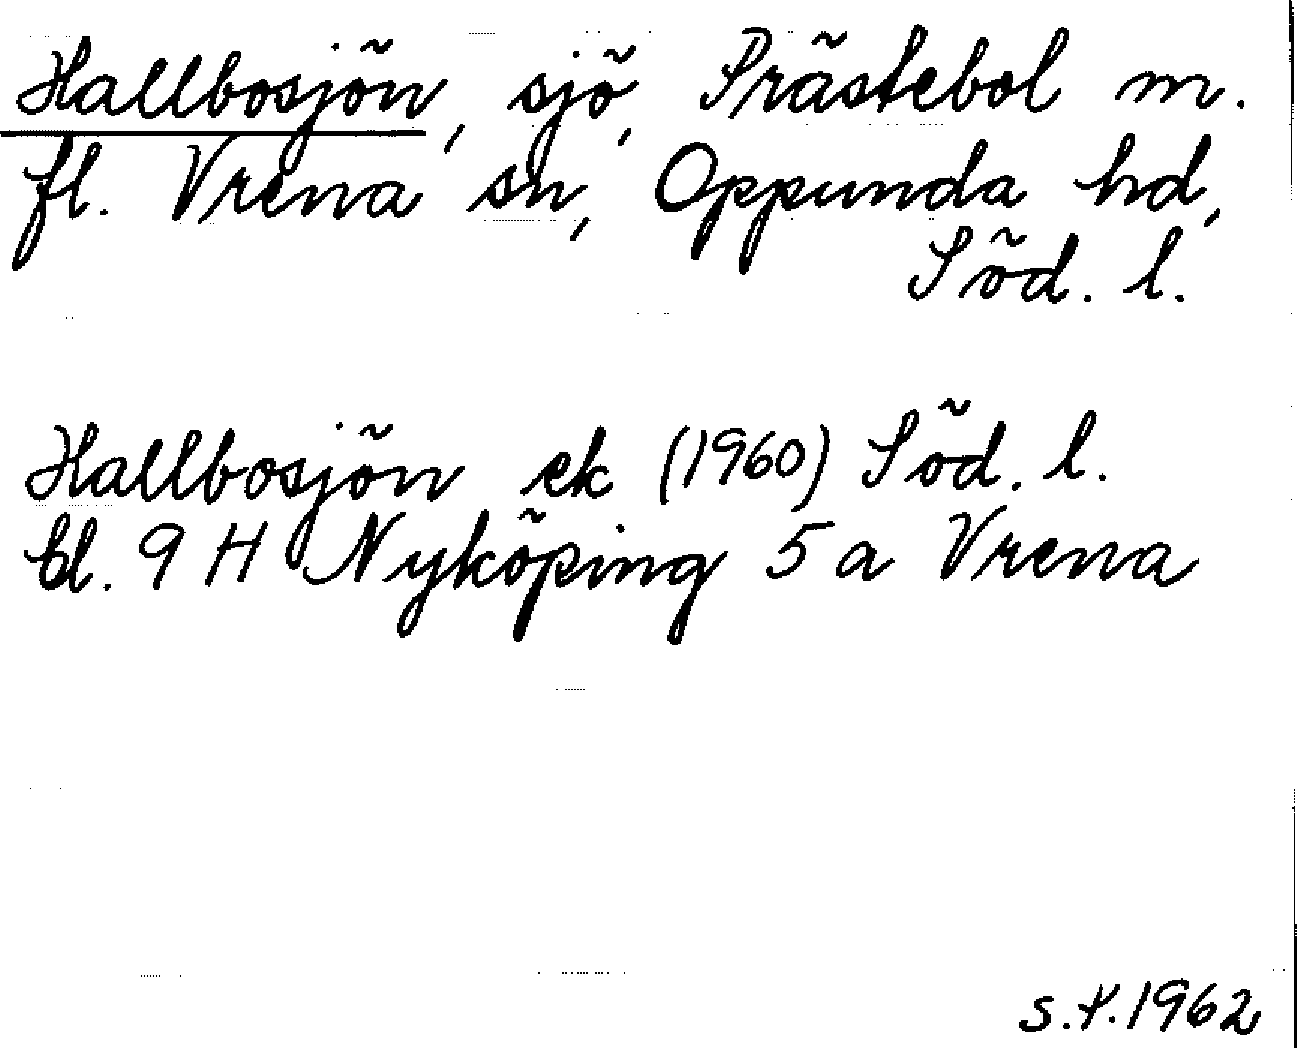 Hallbosjön, sjö, Prästebol m.
fl. Vrena sn, Oppunda hd,
Söd. l.
Hallbosjön ek (1960) Söd. l.
bl. 9 H Nyköping 5 a Vrena
1962